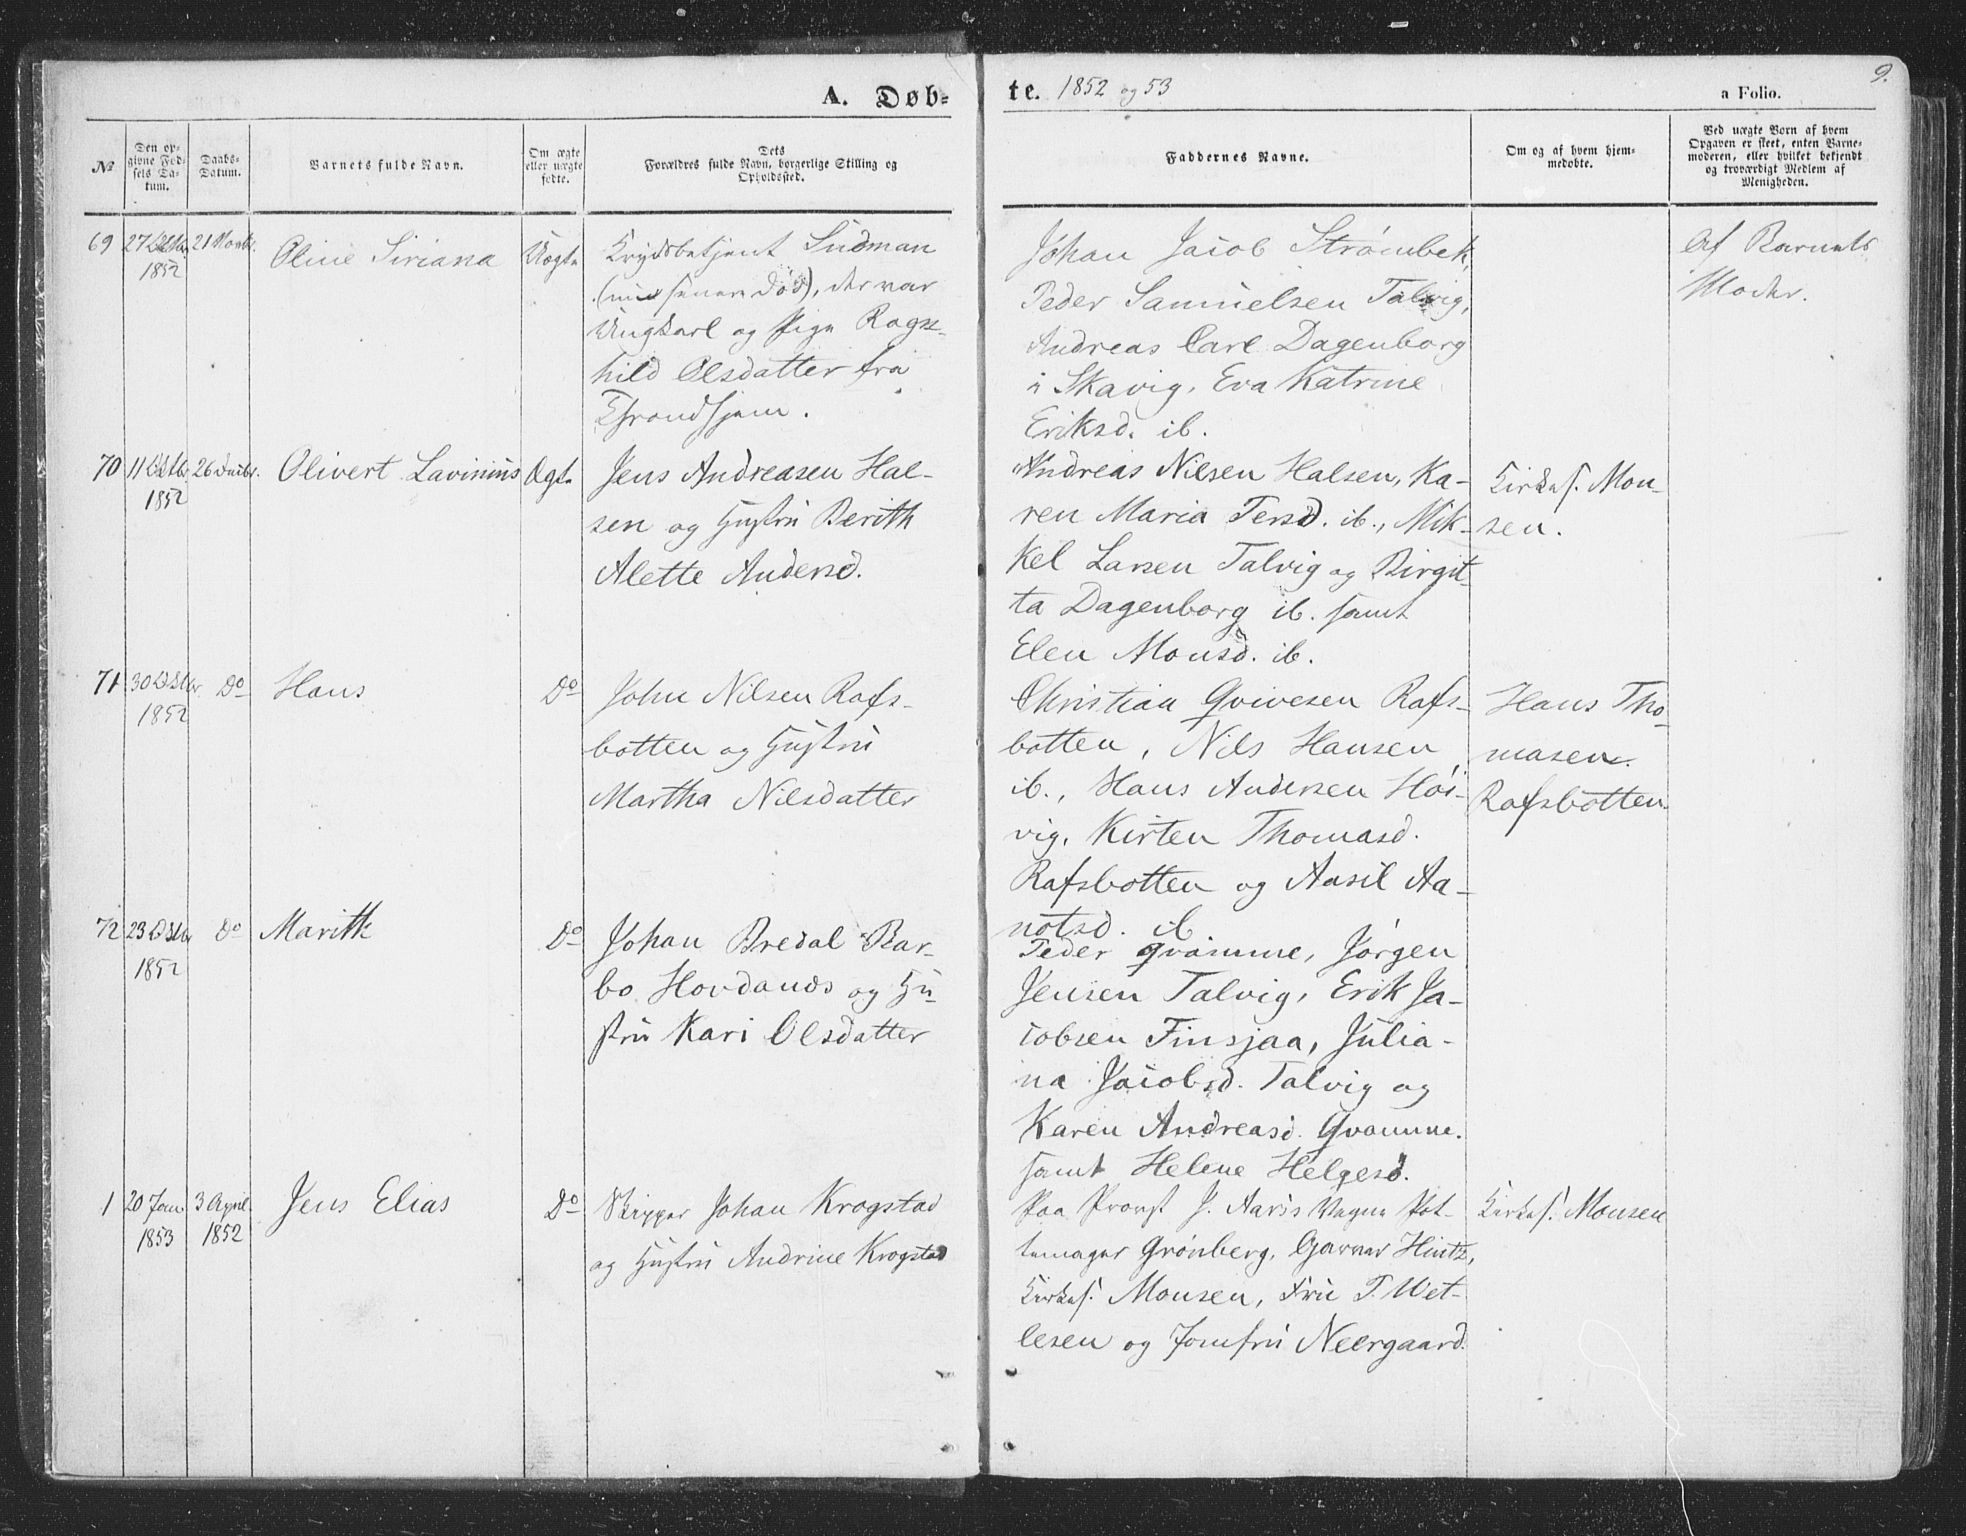 A. Døb-
te. 1852 og 53
a Folio.
9.
No
Den op-
givne Fød-
sels Da-
tum.
Daabs-
Datum.
Barnets fulde Navn.
Om ægte
eller uægte
fødte.
Dets
Forældres fulde Navn, borgerlige Stilling og
Opholdssted.
Faddernes Navne.
Om og af hvem hjem-
medøbte.
Ved uægte Børn af hvem
Opgaven er skeet, enten Barne-
moderen, eller hvilket bekjendt
og troværdigt Medlem af
Menigheden.
69
27 Oktbr
1852
21 Novbr.
Oline Siriana
Uægte
Krydsbetjent Sudman
(nu senere død), der var
Ungkarl og Pige Ragn-
hild Olsdatter fra
Throndhjem.
Johan Jacob Strømbek,
Peder Samuelsen Talvig,
Andreas Carl Dagenborg
i Skavig, Eva Katrine
Eriksd. ib.
Af Barnets
Moder.
70
11 Oktbr
1852
26 Decbr.
Olivert Lavinius
Ægte
Jens Andreasen Hal-
sen og Hustru Berith
Alette Andersd.
Andreas Nilsen Halsen, Ka-
ren Maria Persd. ib., Mik-
kel Larsen Talvig og Birgit-
ta Dagenborg ib. samt
Elen Monsd. ib.
Kirkes. Mon-
sen.
71
30 Oktbr
1852
Do
Hans
Do
John Nilsen Rafs-
botten og Hustru
Martha Nilsdatter
Christian Qvivesen Rafs-
botten, Nils Hansen
ib., Hans Andersen Høi-
vig, Kirten Thomasd.
Rafsbotten og Aasil Aa-
notsd. ib
Hans Tho-
masen.
Rafsbotten
72
23 Oktbr
1852
Do
Marith
Do
Johan Bredal Bar-
bo Hovdanæs og Hu-
stru Kari Olsdatter
Peder Qvamme, Jørgen
Jensen Talvig, Erik Ja-
cobsen Finsjaa, Julia-
na Jacobsd. Talvig og
Karen Andreasd. Qvamme.
samt Helene Helgesd.
1
20 Jan.
1853
3 April
1852
Jens Elias
Do
Skipper Johan Krogstad
og Hustru Andrine Krogstad
Paa Provst J. Aars's Vegne Pot-
temager Grønberg, Garver Hintz,
Kirkes. Monsen, Fru T. Wet-
lesen og Jomfru Neergaard.
Kirkes. Monsen